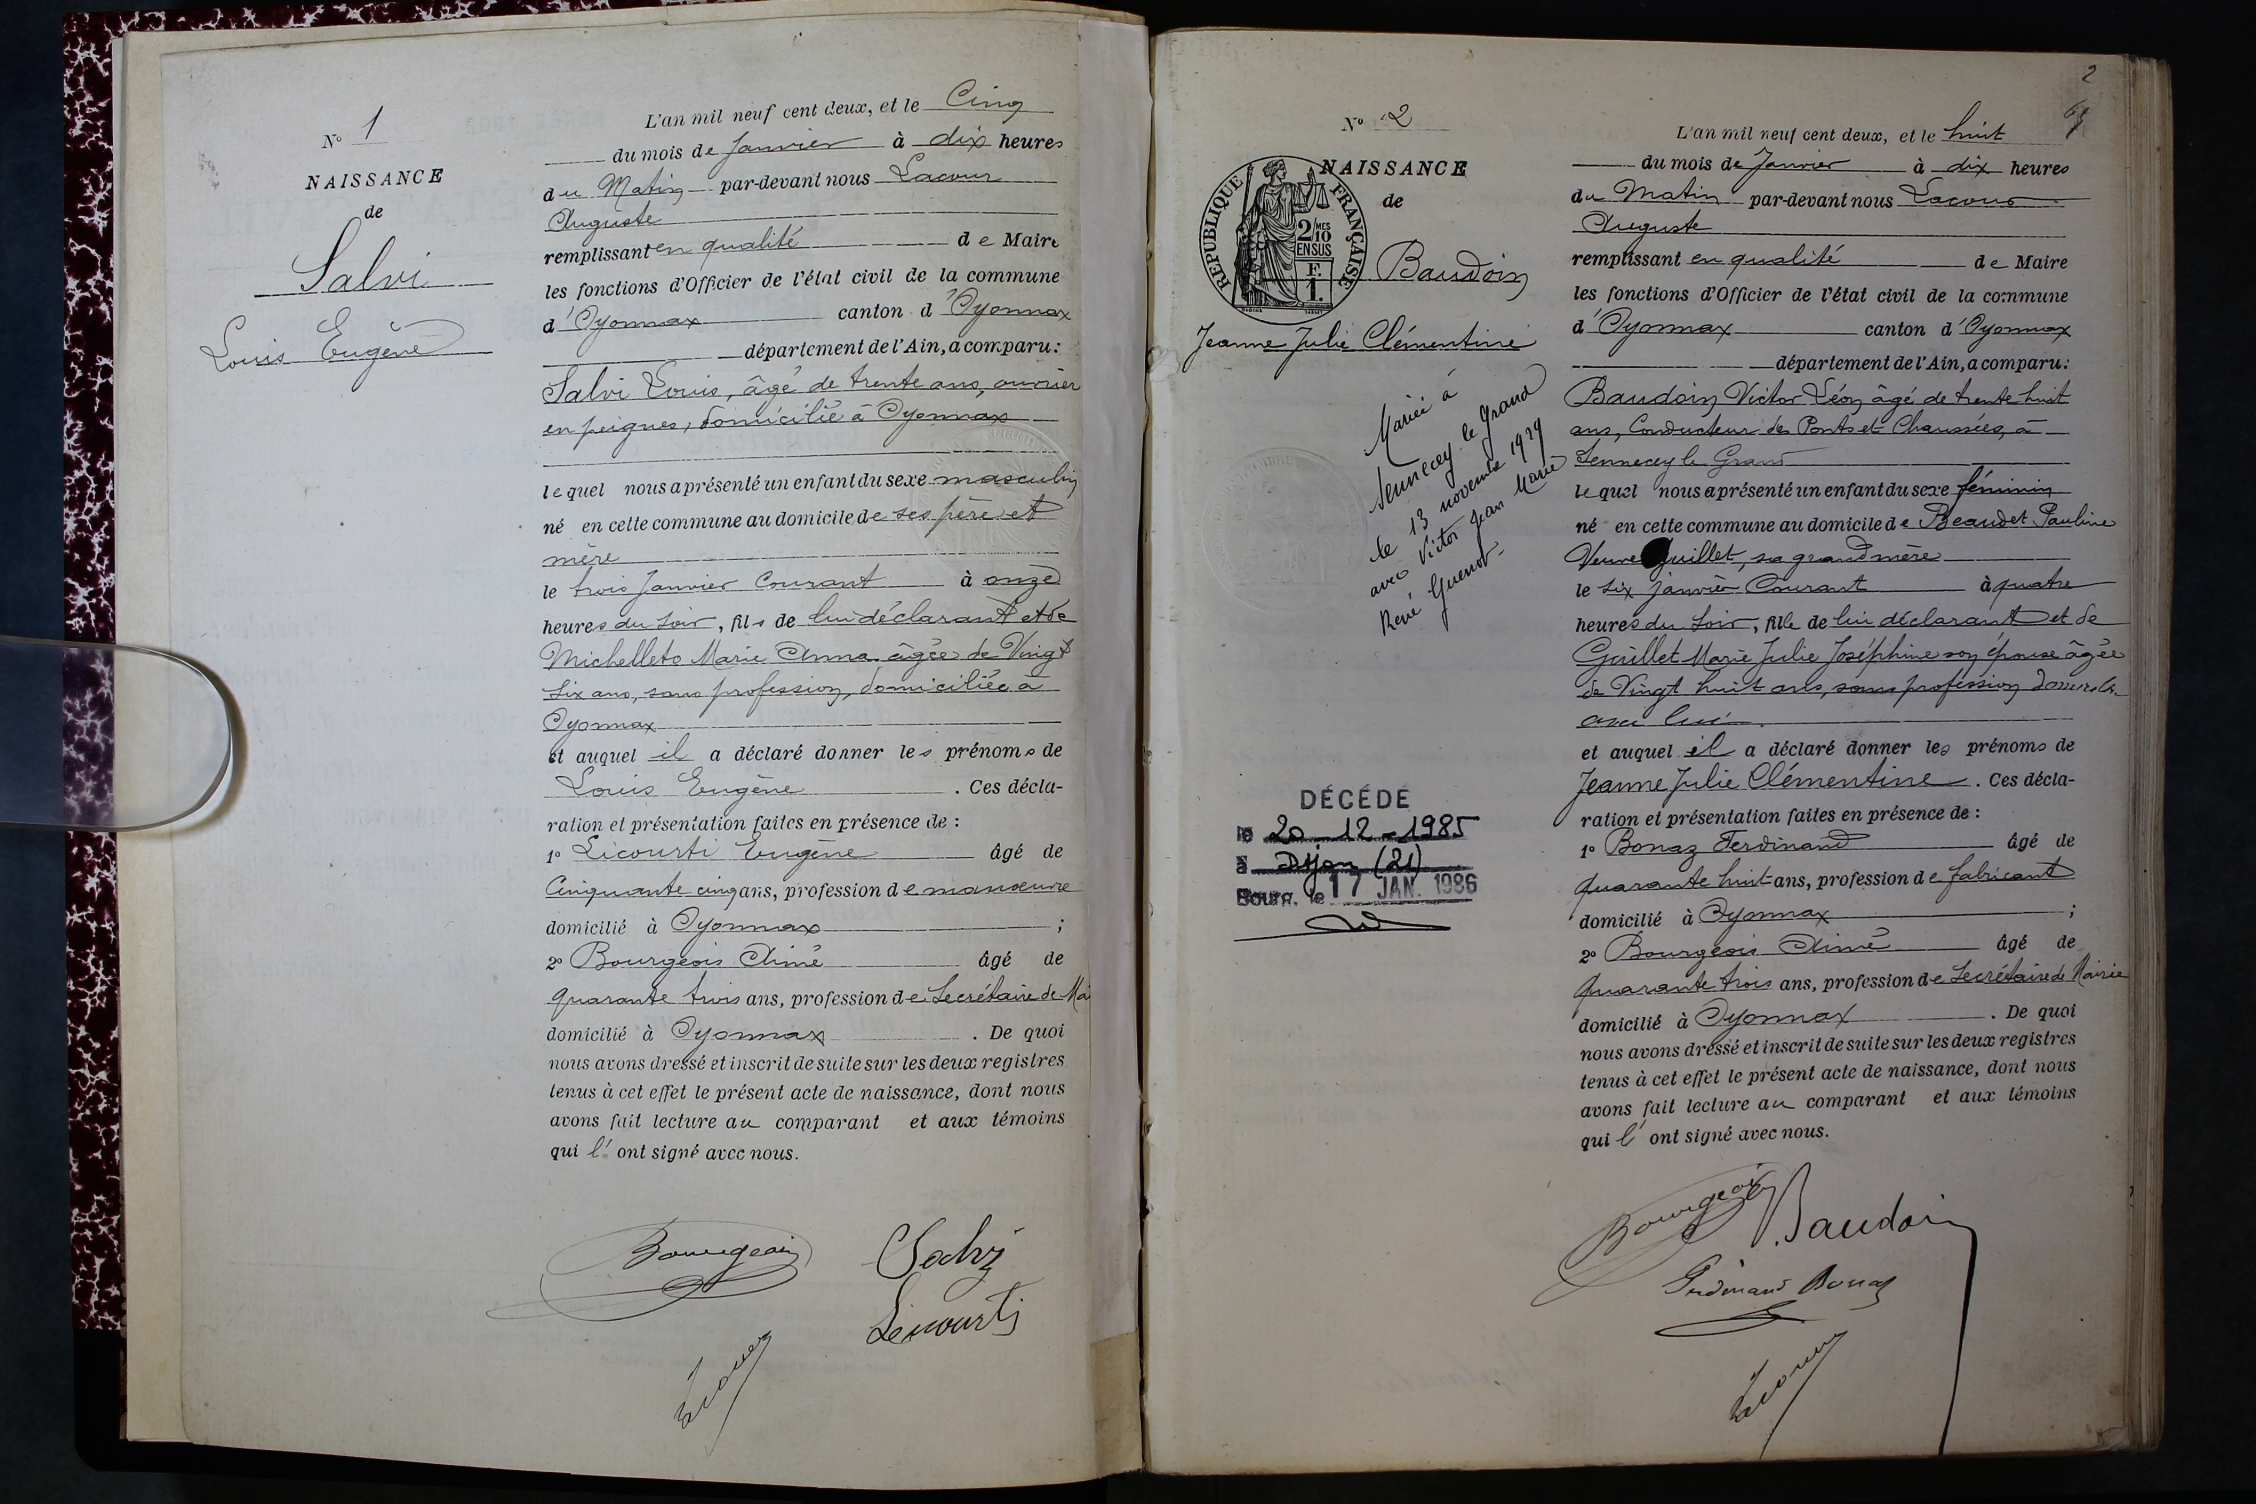 N° 1
NAISSANCE
de
Salvi
Louis Eugène
L'an mil neuf cent deux, et le Cinq
du mois de Janvier à dix heures
du Matin par-devant nous Lacour
Auguste
remplissant en qualité de Maire
les fonctions d'Officier de l'état civil de la commune
d'Oyonnax canton d'Oyonnax
département de l'Ain, a comparu:
Salvi Louis, âgé de trente ans, ouvrier
en peignes, domicilié à Oyonnax
lequel nous a présenté un enfant du sexe masculin
né en cette commune au domicile de ses père et
mère
le trois Janvier Courant à onze
heures du soir, fils de lui déclarant et de
Michelleto Marie Anna âgée de Vingt
six ans, sans profession, domiciliée à
Oyonnax
et auquel il a déclaré donner les prénoms de
Louis Eugène. Ces décla-
ration et présentation faites en présence de :
1° Licourti Eugène âgé de
Cinquante cinq ans, profession de manœuvre
domicilié à Oyonnax ;
2° Bourgeois Aimé âgé de
quarante trois ans, profession de Secrétaire de Mai
domicilié à Oyonnax. De quoi
nous avons dressé et inscrit de suite sur les deux registres
tenus à cet effet le présent acte de naissance, dont nous
avons fait lecture au comparant et aux témoins
qui l'ont signé avec nous.
Bourgeois Salvi
Licourti
Lacour
2
N° 2
NAISSANCE
de
RÉPUBLIQUE FRANÇAISE
2/10MES
EN SUS
F.
1.
Baudoin
Jeanne Julie Clémentine
Mariée à
Sennecey le Grand
le 13 novembre 1929
avec Victor Jean Marie
René Guenot.
DÉCÉDÉ
le 20-12-1985
à Dijon (21)
Bourg, le 17 JAN. 1986
L'an mil neuf cent deux, et le huit
du mois de Janvier à dix heures
du Matin par-devant nous Lacour
Auguste
remplissant en qualité de Maire
les fonctions d'Officier de l'état civil de la commune
d'Oyonnax canton d'Oyonnax
département de l'Ain, a comparu:
Baudoin Victor Léon âgé de trente huit
ans, Conducteur des Ponts et Chaussées, à
Sennecey le Grand
lequel nous a présenté un enfant du sexe féminin
né en cette commune au domicile de Beaudet Pauline
Veuve Guillet, sa grand mère
le six janvier Courant à quatre
heures du soir, fille de lui déclarant et de
Guillet Marie Julie Joséphine son épouse âgée
de Vingt huit ans, sans profession
avec lui.
et auquel il a déclaré donner les prénoms de
Jeanne Julie Clémentine. Ces décla-
ration et présentation faites en présence de :
1° Bonaz Ferdinand âgé de
quarante huit ans, profession de fabricant
domicilié à Oyonnax ;
2° Bourgeois Aimé âgé de
quarante trois ans, profession de Secrétaire de Mairie
domicilié à Oyonnax. De quoi
nous avons dressé et inscrit de suite sur les deux registres
tenus à cet effet le présent acte de naissance, dont nous
avons fait lecture au comparant et aux témoins
qui l'ont signé avec nous.
Bourgeois Baudoin
Ferdinand Bonaz
Lacour